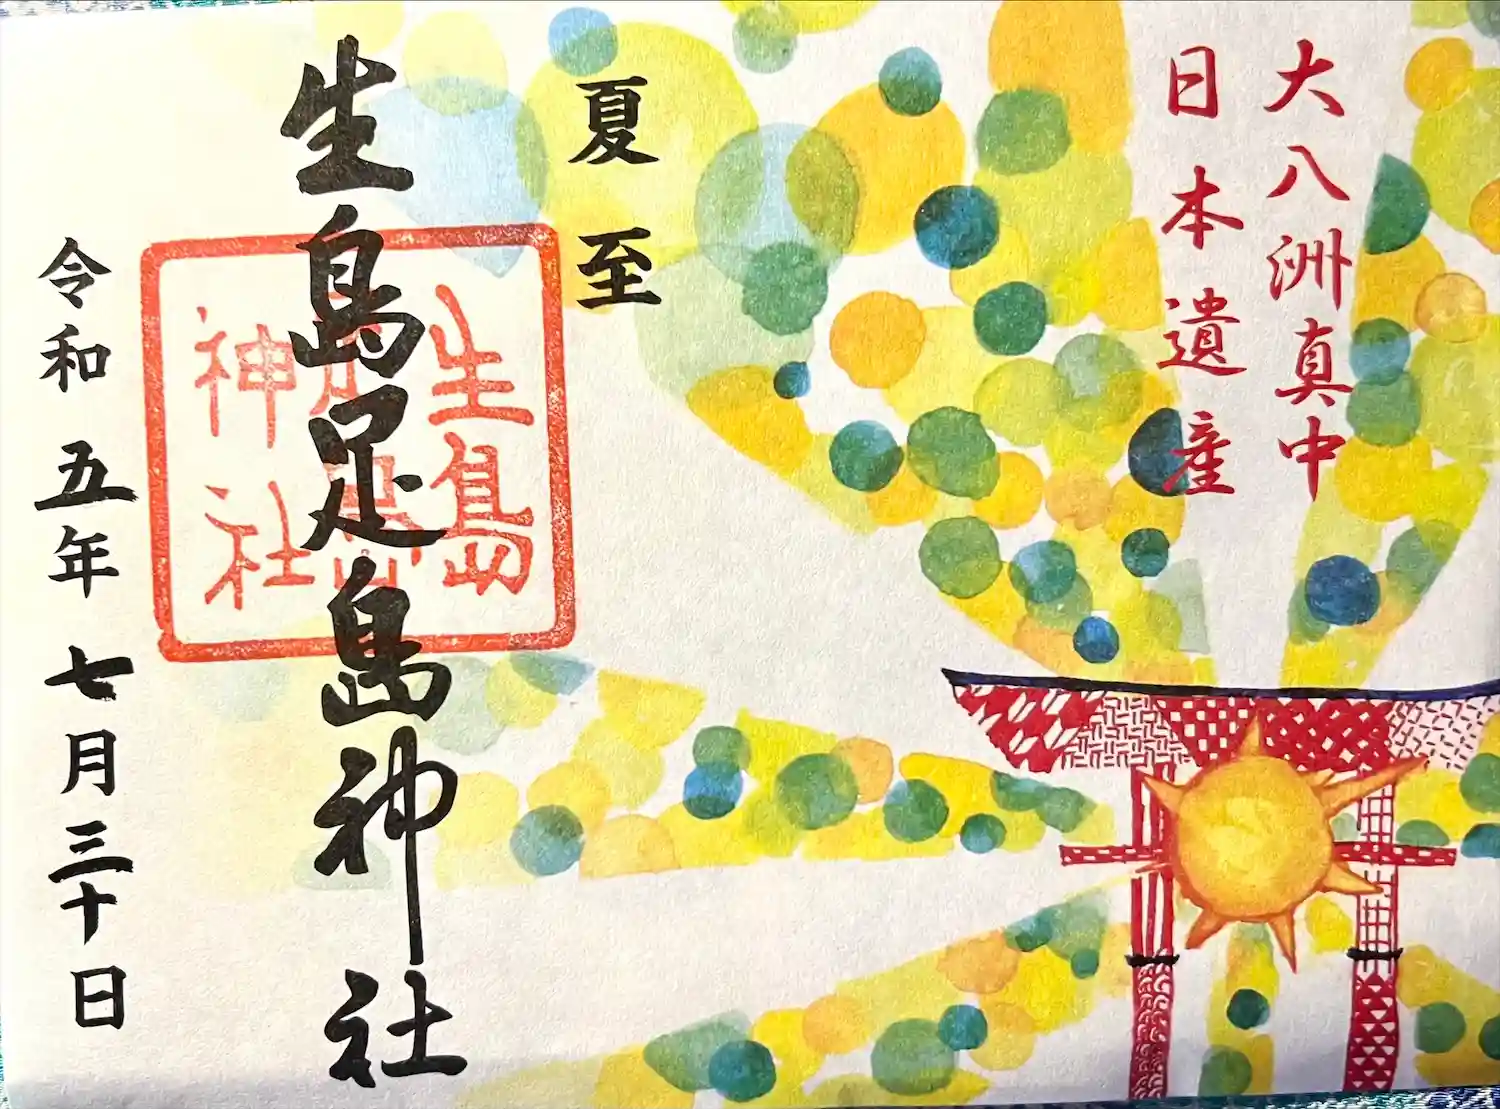 大八洲真中
日本遺産
夏至
生島足島神社
生島
足島
神社
令和五年七月三十日